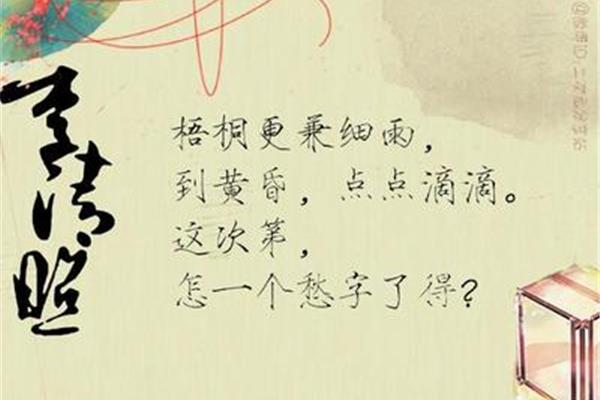 李清照
梧桐更兼细雨，
到黄昏，点点滴滴。
这次第，
怎一个愁字了得？